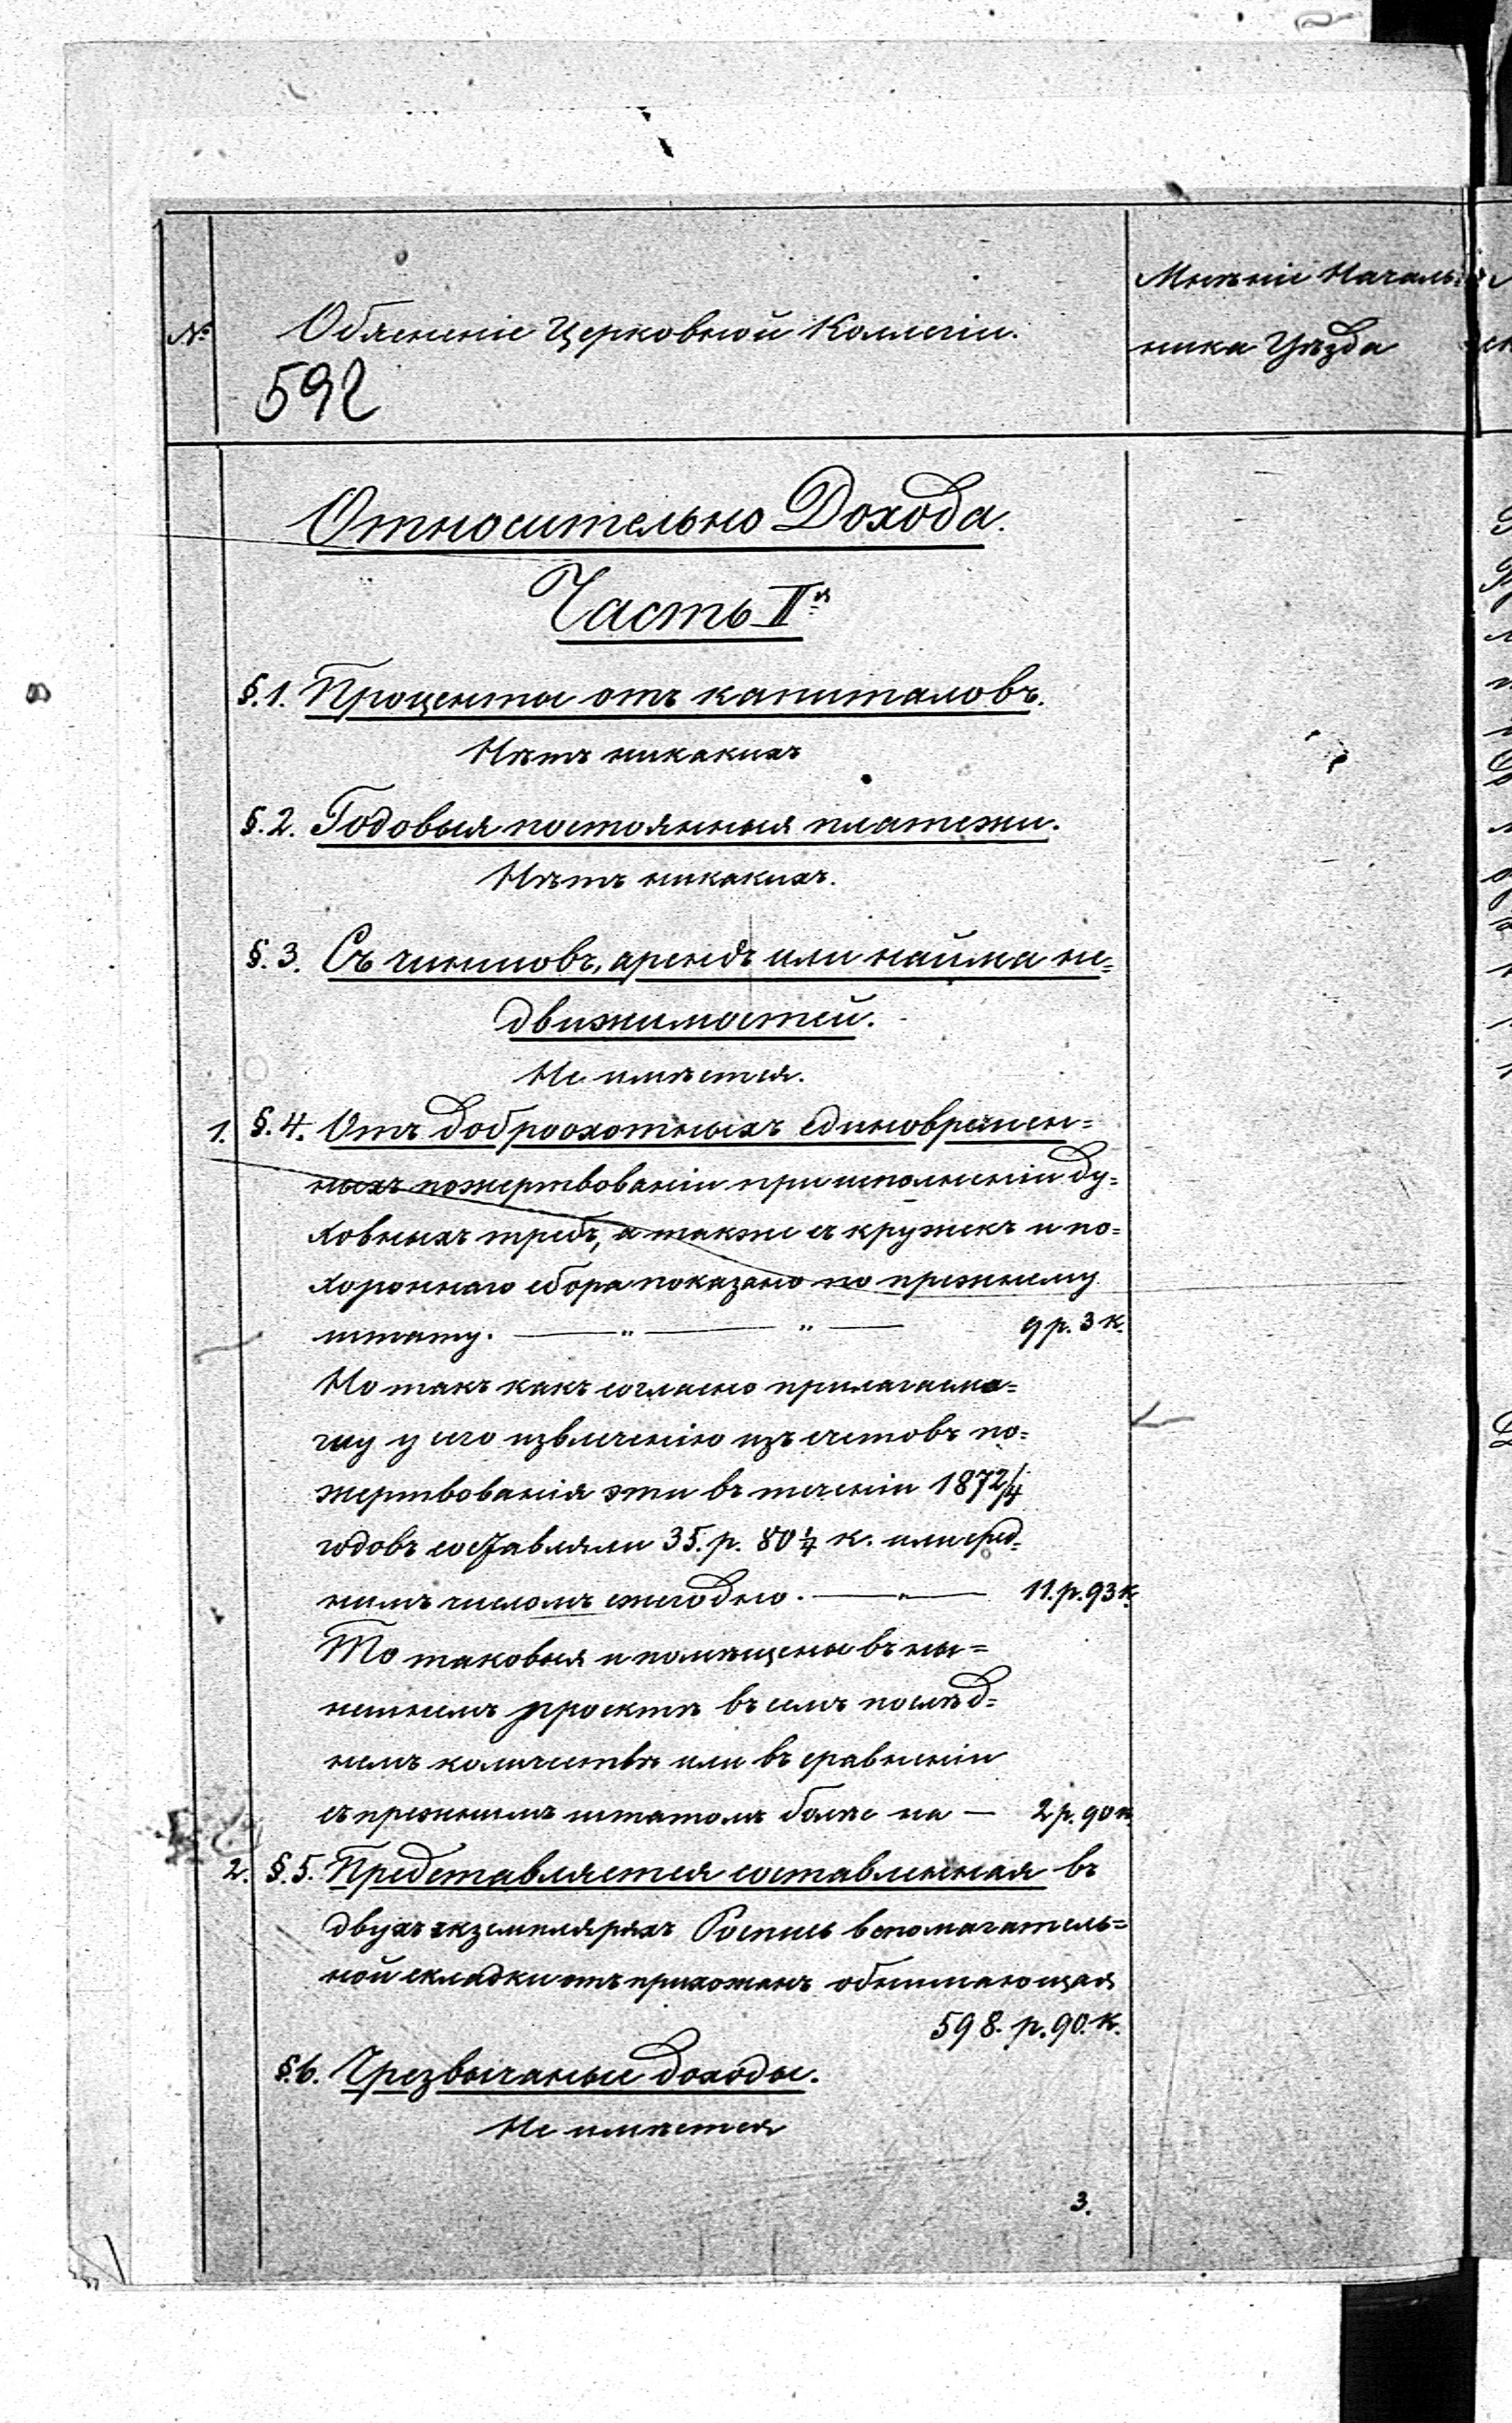 №
Обясненіе Церковной Коллегіи.
Мнѣніе Началь-
ника Уѣзда
592
Относительно Дохода.
Часть I я
§. 1. Проценты отъ капиталовъ.
Нѣтъ никакихъ
§. 2. Годовыя постоянныя платежи.
Нѣтъ никакихъ.
§. 3. Съ чиншовъ, арендъ или найма не=
движимостей.
Не имѣется.
1. §. 4. Отъ доброохотныхъ единовремен=
ныхъ пожертвованіи при исполненіи ду=
ховныхъ требъ, а также съ кружекъ и по=
хороннаго сбора показано по прежнему
штату. — „ — „ — 9 р. 3 к.
Но такъ какъ согласно прилагаемо=
му у сего извлеченію изъ счетовъ по=
жертвованія эти въ теченіи 1872/4
годовъ составляли 35. р. 80 1/4 к. или сред=
нимъ числомъ ежегодно. — „ — 11. р. 93 к.
То таковыя и помѣщены въ ны=
нешнемъ проектѣ въ семъ послѣд=
немъ количествѣ или въ сравненіи
съ прежнимъ штатомъ болѣе на — 2 р. 90 к.
2. §. 5. Представляется составленная въ
двухъ экземплярахъ Роспись вспомагатель=
ной складки отъ прихожанъ обнимающая
598. р. 90. к.
§. 6. Чрезвычаные доходы.
Не имѣется
3.